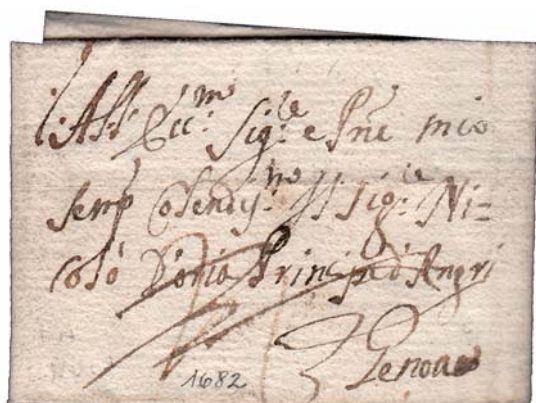 All Ecc.mo Sig.re e Pne mio
semp Colendis.mo Il Sig.re Ni=
colò Doria Principe d'Angri
Genova
1682